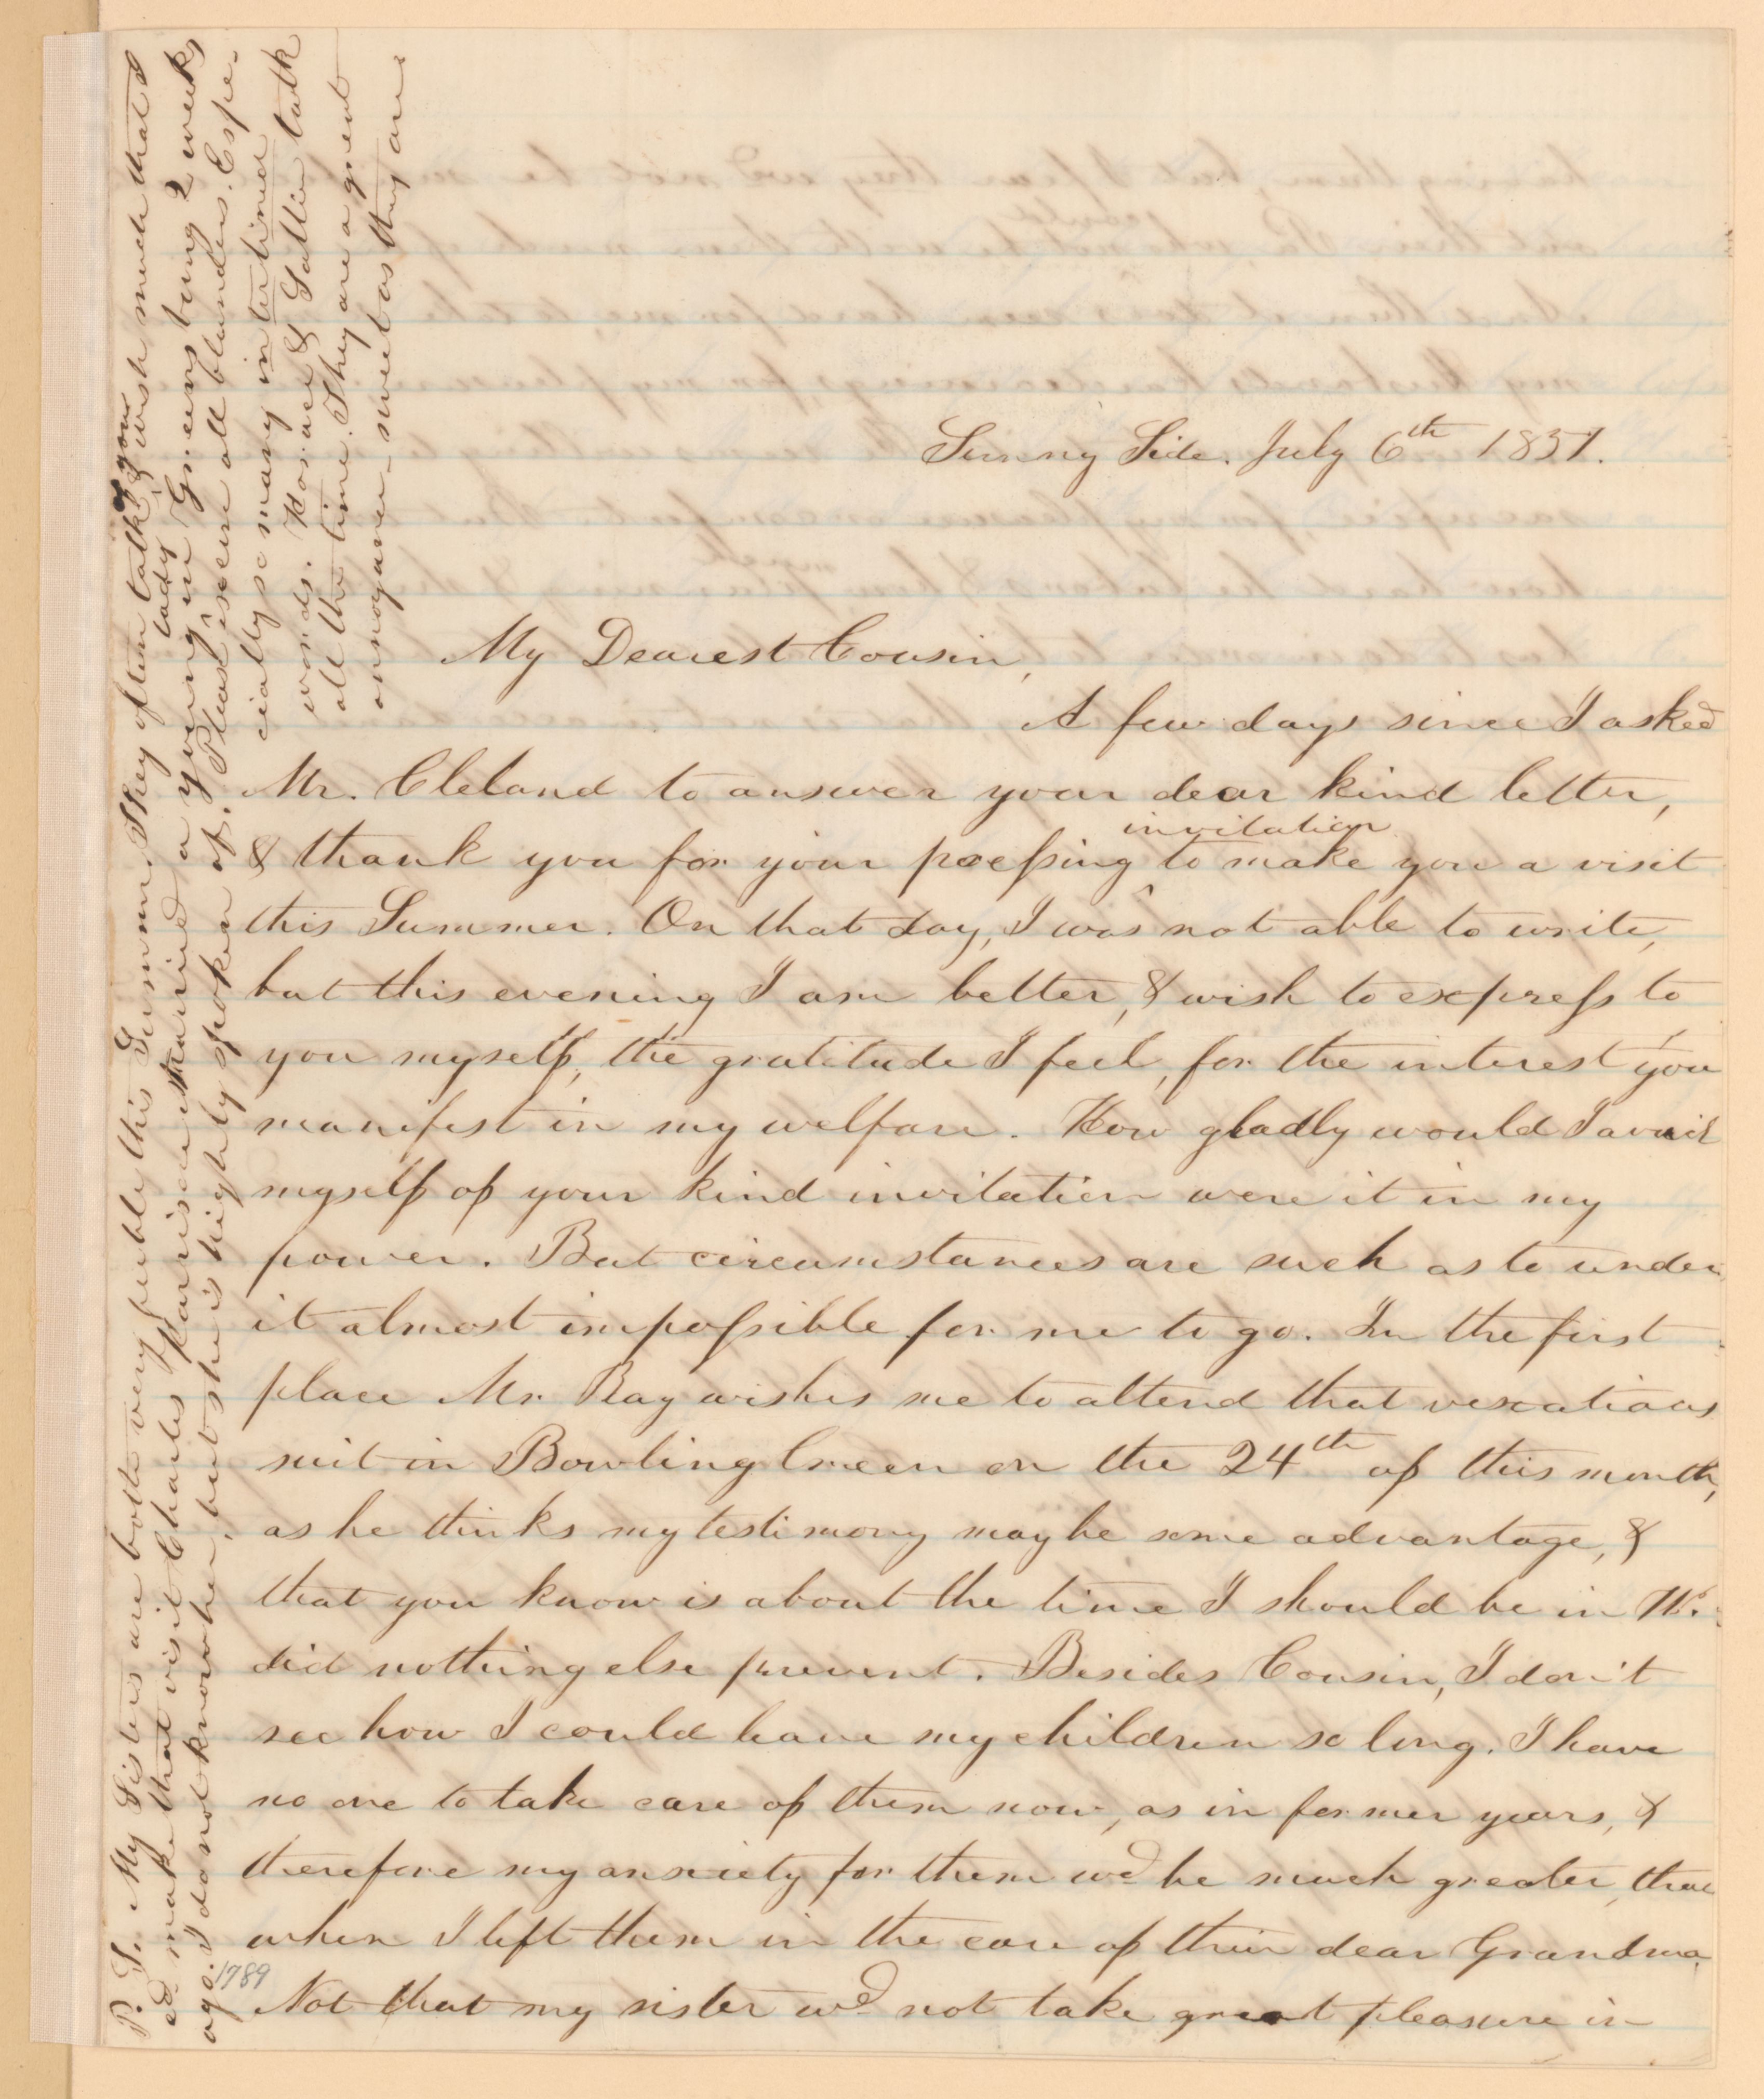 Sunny Side. July 6th 1857.
My Dearest Cousin,
A few days since I asked
Mr. Cleland to answer your dear kind letter,
& thank you for your pressing invitation to make you a visit
this Summer. On that day, I was not able to write,
but this evening I am better, & wish to express to
you myself, the gratitude I feel, for the interest you
manifest in my welfare. How gladly would I avail
myself of your kind invitation were it in my
power. But circumstances are such as to render
it almost impossible for me to go. In the first
place Mr. Ray wishes me to attend that vexatious
suit in Bowling Green on the 24th of this month,
as he thinks my testimony may be some advantage, &
that you know is about the time I should be in W.
did nothing else prevent. Besides Cousin, I don't
see how I could leave my children so long. I have
no one to take care of them now, as in former years, &
therefore my anxiety for them wd be much greater, than
when I left them in the care of their dear Grandma.
Not that my sister wd not take great pleasure in
1789
P. S. My Sisters are both very feeble this Summer. They often talk of you. I wish much that I
cd make that visit. Charles married a young lady in Greensburg 2 weeks
ago. I do not know her, but she is highly spoken of. Please excuse all blunders. Espe-
cially so many interlined
words. Horace & Sallie talk
all the time. They are a great
annoyance - sweet as they are